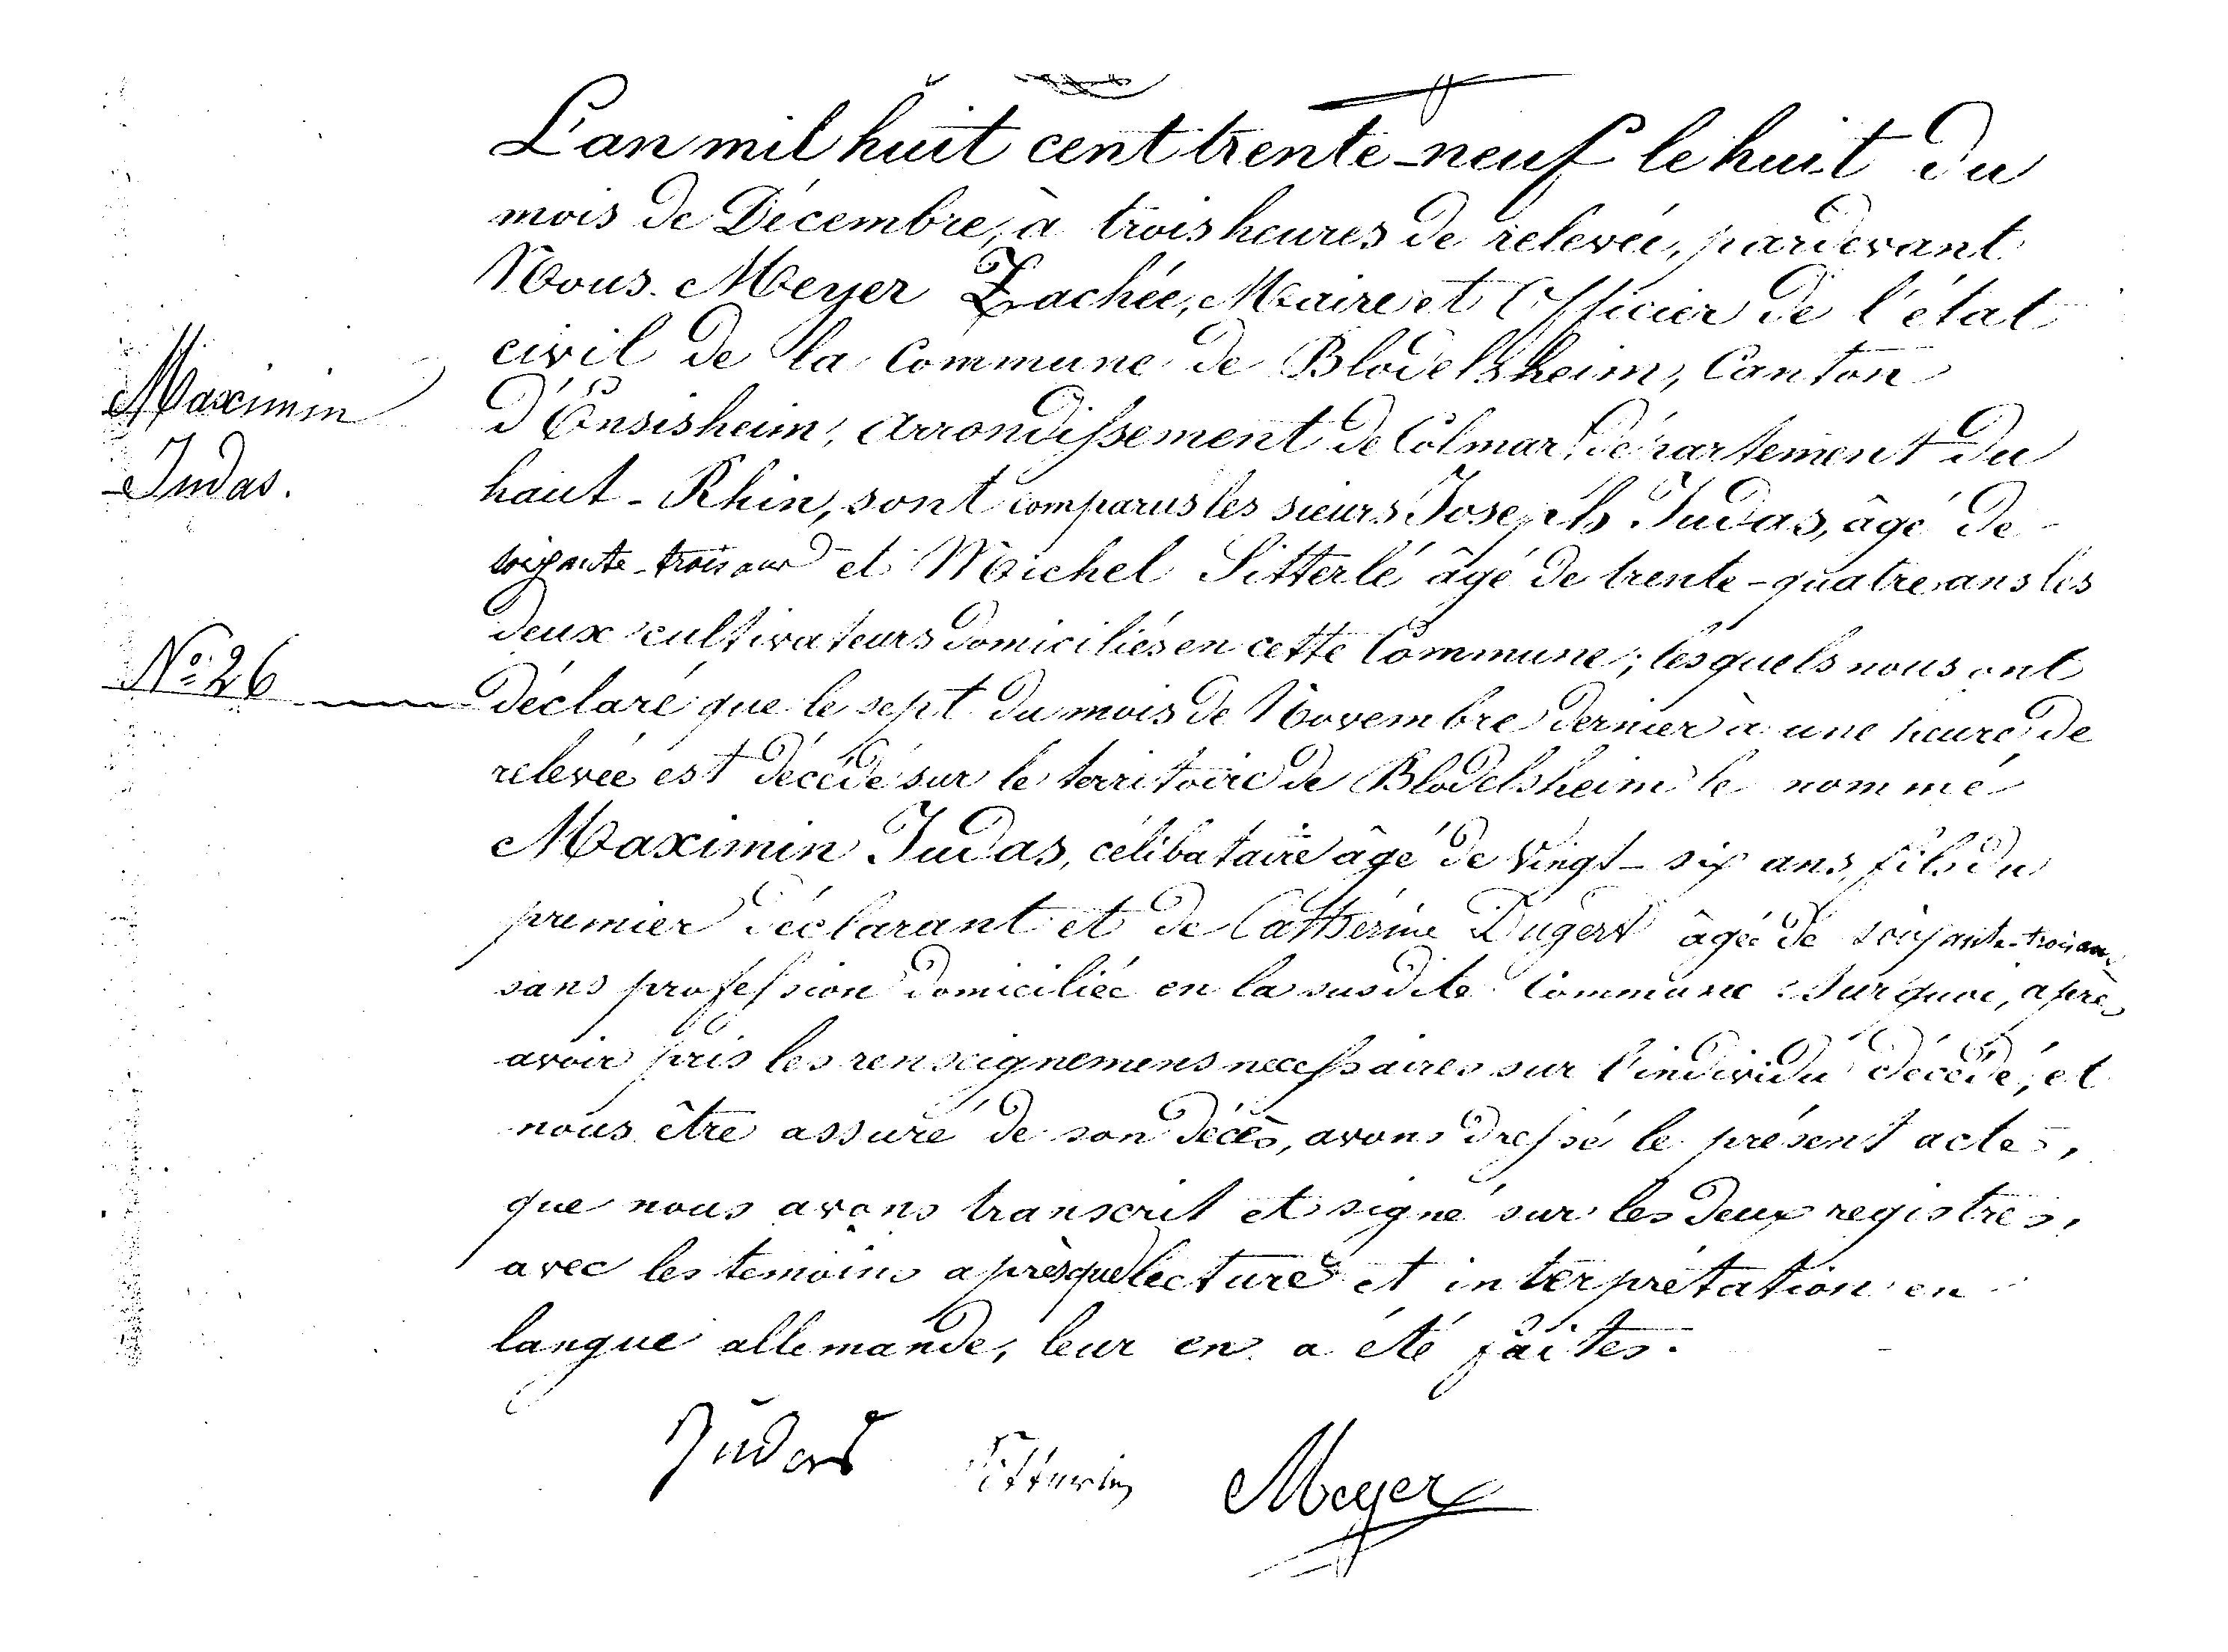 L'an mil huit cent trente-neuf le huit du
mois de Décembre, à trois heures de relevée, pardevant
Nous Meyer Zachée, Maire et Officier de l'état
civil de la Commune de Blodelsheim, Canton
Maximin
d'Ensisheim, Arrondissement de Colmar, Département du
Judas.
haut-Rhin, sont comparus les sieurs Joseph Judas, âgé de
soixante-trois ans et Michel Sitterlé âgé de trente-quatre ans les
deux cultivateurs domiciliés en cette Commune; lesquels nous ont
No. 26
déclaré que le sept du mois de Novembre dernier à une heure de
relevée est décédé sur le territoire de Blodelsheim le nommé
Maximin Judas, célibataire âgé de vingt-six ans, fils du
premier déclarant et de Cathérine Dugert âgée de soixante-trois ans
sans profession domiciliée en la susdite Commune. Sur quoi, après
avoir pris les renseignemens necessaires sur l'individu décédé, et
nous être assuré de son décès, avons dressé le présent acte,
que nous avons transcrit et signé sur les deux registres,
avec les temoins après que lecture et interprétation en
langue allemande, leur en a été faites.
Judas Sitterlin Meyer